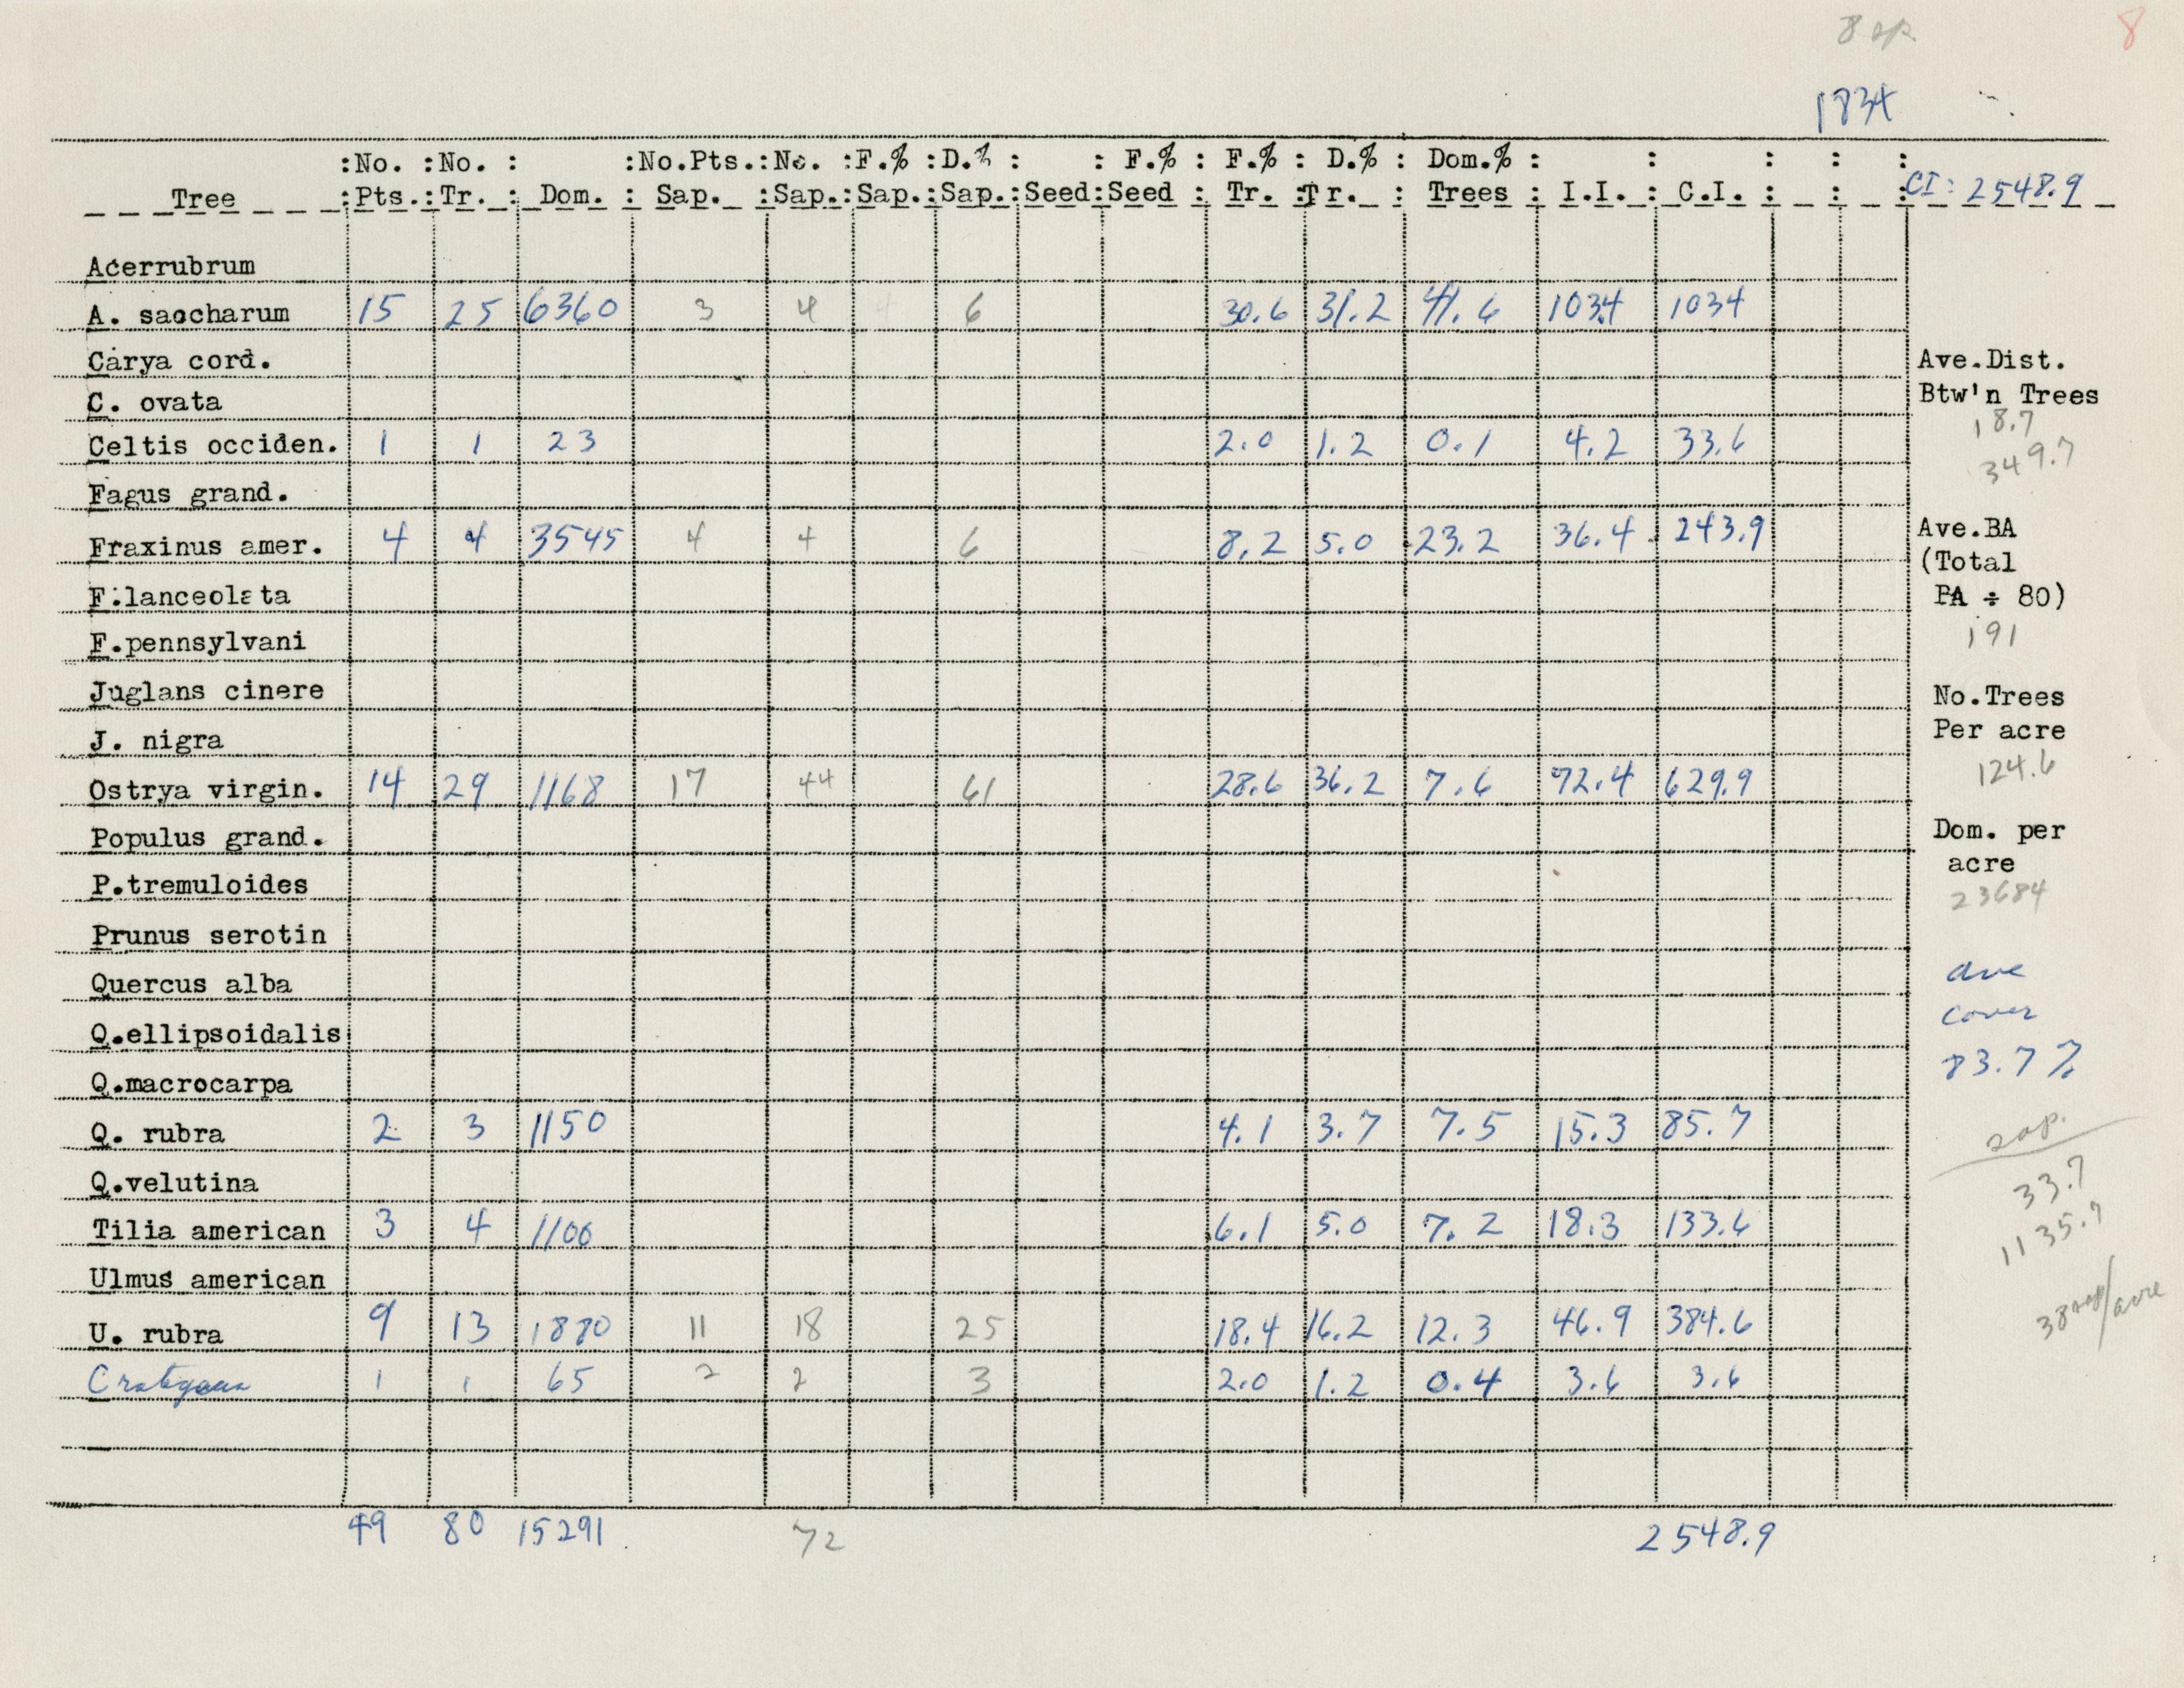 8 sp. 8
1834
:No. :No. : :No.Pts.:No. :F.% :D.% : : F.% : F.% : D.% : Dom.% : : : : :
Tree :Pts.:Tr. : Dom. : Sap. :Sap.:Sap.:Sap.:Seed:Seed : Tr. :Tr. : Trees : I.I. : C.I. : : : CI: 2548.9
Acerrubrum
A. saccharum 15 25 6360 3 4 4 6 30.6 31.2 41.6 103.4 1034
Carya cord. Ave.Dist.
C. ovata Btw'n Trees
18.7
Celtis occiden. 1 1 23 2.0 1.2 0.1 4.2 33.6
349.7
Fagus grand.
Fraxinus amer. 4 4 3545 4 4 6 8.2 5.0 23.2 36.4 243.9 Ave.BA
(Total
F.lanceolata BA ÷ 80)
F.pennsylvani 191
Juglans cinere No.Trees
J. nigra Per acre
124.6
Ostrya virgin. 14 29 1168 17 44 61 28.6 36.2 7.6 72.4 629.9
Populus grand. Dom. per
acre
P.tremuloides 23684
Prunus serotin
Quercus alba ave
Q.ellipsoidalis cover
Q.macrocarpa 83.7 %
Q. rubra 2 3 1150 4.1 3.7 7.5 15.3 85.7 sap.
Q.velutina 33.7
Tilia american 3 4 1100 6.1 5.0 7.2 18.3 133.6 1135.7
Ulmus american
U. rubra 9 13 1880 11 18 25 18.4 16.2 12.3 46.9 384.6 38 sap/acre
Crategaeus 1 1 65 2 2 3 2.0 1.2 0.4 3.6 3.6
49 80 15291 72 2548.9